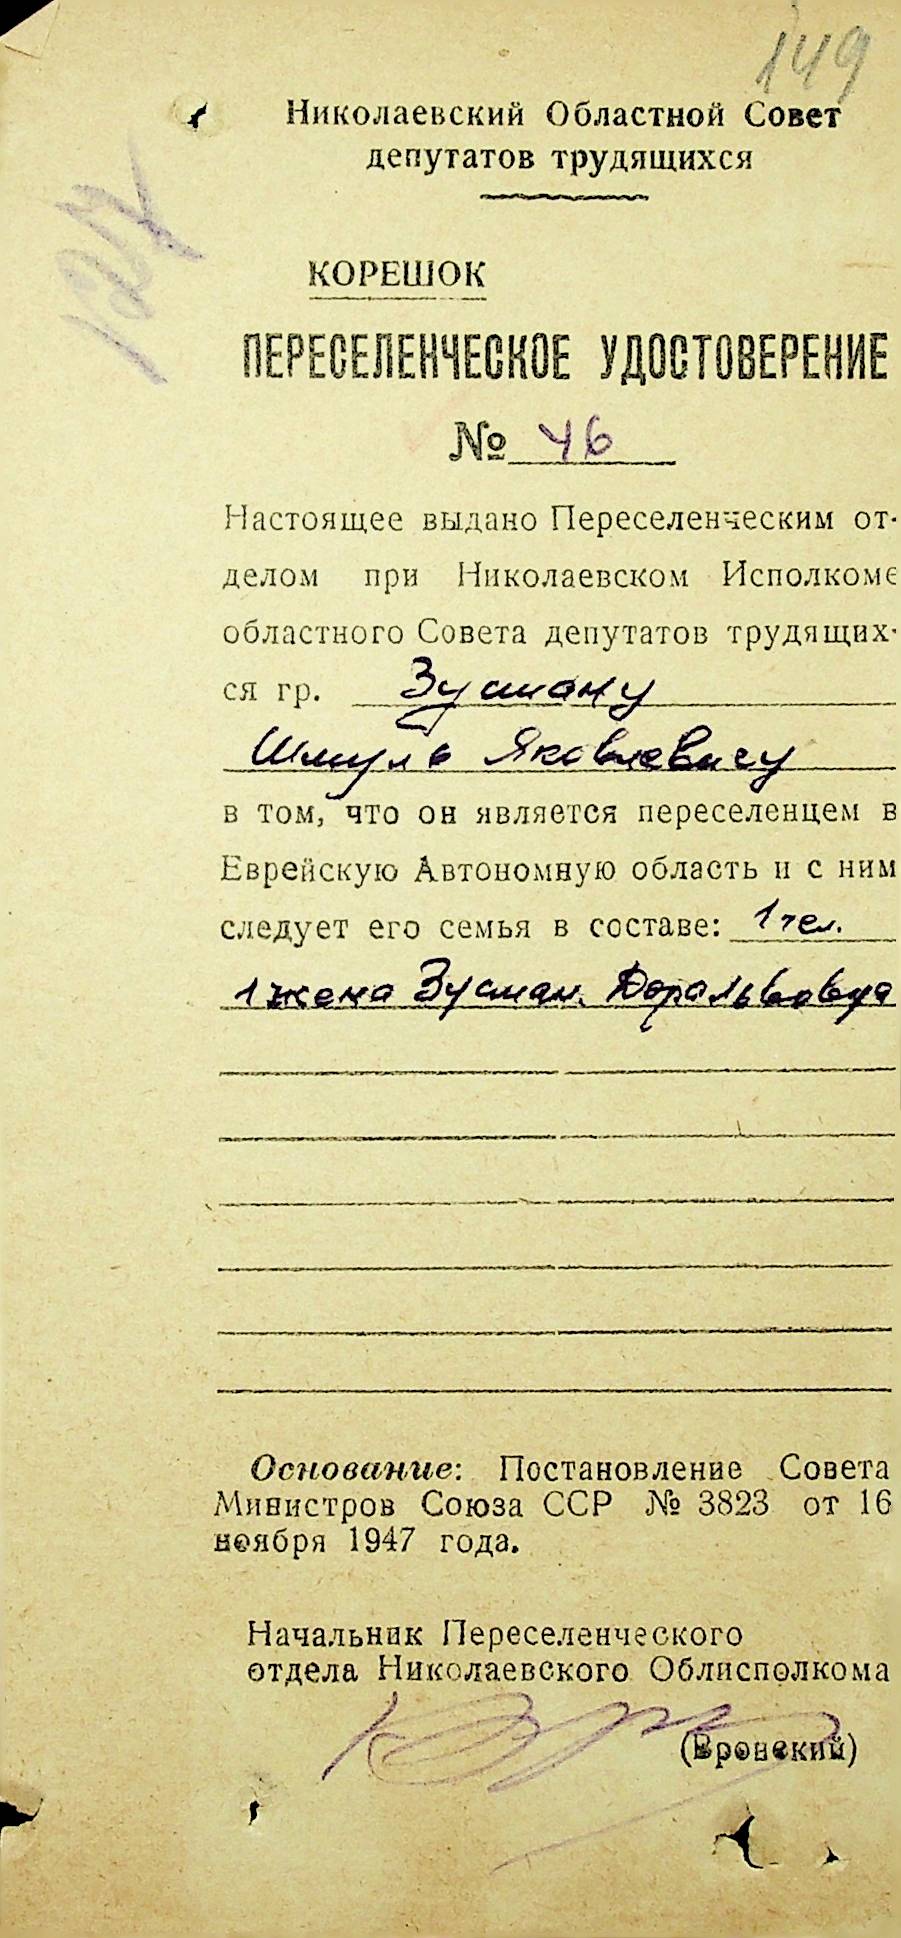 149
Николаевский Областной Совет
депутатов трудящихся
127
КОРЕШОК
ПЕРЕСЕЛЕНЧЕСКОЕ УДОСТОВЕРЕНИЕ
№ 46
Настоящее выдано Переселенческим от-
делом при Николаевском Исполкоме
областного Совета депутатов трудящих-
ся гр. Зусману
Шмуль Яковлевичу
в том, что он является переселенцем в
Еврейскую Автономную область и с ним
следует его семья в составе: 1 чел.
1 жена Зусман. Дора Львовна
Основание: Постановление Совета
Министров Союза ССР № 3823 от 16
ноября 1947 года.
Начальник Переселенческого
отдела Николаевского Облисполкома
(Вронский)